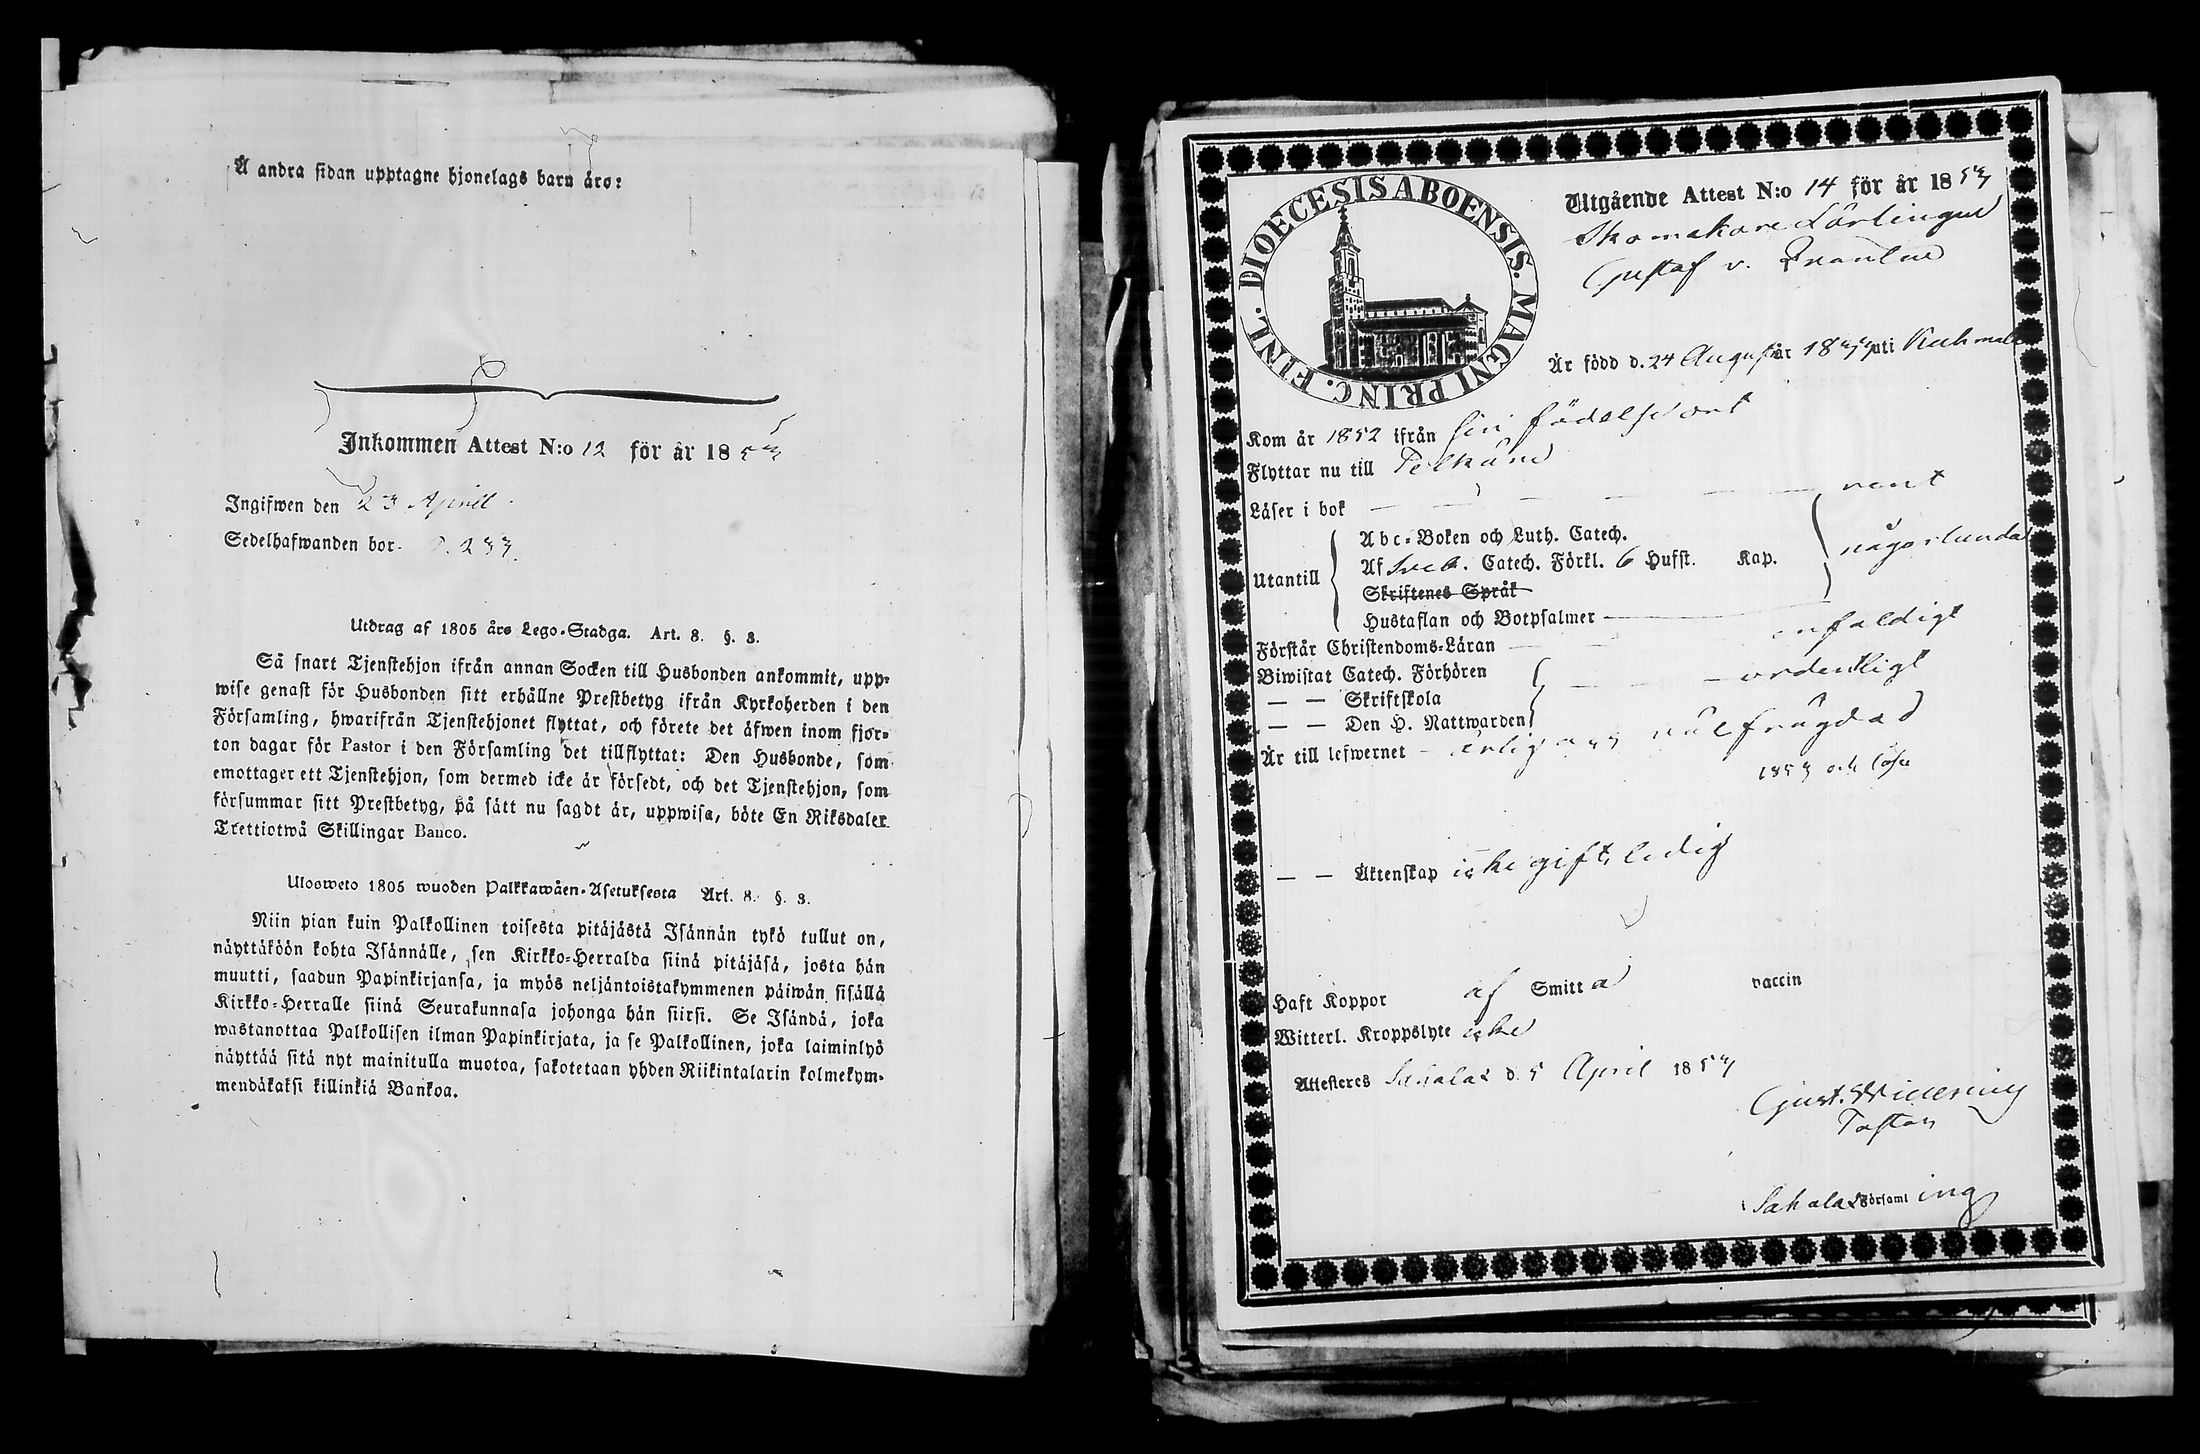 Å andra sidan upptagne hjonelags barn äro:
Inkommen Attest N:o 12 för år 1853
Ingifwen den 23 April
Sedelhafwanden bor. p. 233.
Utdrag af 1805 års Lego-Stadga. Art. 8. §. 3.
Så snart Tjenstehjon ifrån annan Socken till Husbonden ankommit, upp-
wise genast för Husbonden sitt erhållne Prestbetyg ifrån Kyrkoherden i den
Församling, hwarifrån Tjenstehjonet flyttat, och förete det äfwen inom fjor-
ton dagar för Pastor i den Församling det tillflyttat: Den Husbonde, som
emottager ett Tjenstehjon, som dermed icke är försedt, och det Tjenstehjon, som
försummar sitt Prestbetyg, på sätt nu sagdt är, uppwisa, böte En Riksdaler
Trettiotwå Skillingar Banco.
Uloosweto 1805 wuoden Palkkawäen-Asetuksesta Art. 8. §. 3.
Niin pian kuin Palkollinen toisesta pitäjästä Isännän tykö tullut on,
näyttäköön kohta Isännälle, sen Kirkko-Herralda siinä pitäjäsä, josta hän
muutti, saadun Papinkirjansa, ja myös neljäntoistakymmenen päiwän sisällä
Kirkko-Herralle siinä Seurakunnasa johonga hän siirsi. Se Isändä, joka
wastanottaa Palkollisen ilman Papinkirjata, ja se Palkollinen, joka laiminlyö
näyttää sitä nyt mainitulla muotoa, sakotetaan yhden Riikintalarin kolmekym-
mendäkaksi killinkiä Bankoa.
DIOECESIS ABOENSIS. MAGNI PRINC. FINL.
Utgående Attest N:o 14 för år 1853
Skomakare Lärlingen
Gustaf v.
Är född d. 24 August år 1833 uti Kuhmalax
Kom år 1852 ifrån sin födelse ort
Flyttar nu till Pelkäne
Läser i bok — — — — — rent
Abc-Boken och Luth. Catech.
Utantill Af Sveb. Catech. Förkl. 6 Hufst. Kap. någorlunda
Skriftenes Språk
Hustaflan och Botpsalmer
Förstår Christendoms-Läran — enfaldigt
Biwistat Catech. Förhören — ordentligt
— — Skriftskola
— — Den H. Nattwarden
Är till lefwernet — ärlig och wälfrägdad
1853 och
— — Äktenskap icke gift, ledig
Haft Koppor af Smitta vaccin
Witterl. Kroppslyte icke
Attesteras Sahalax d. 5 April 1853
Gust.
Pastor
Sahalax Församling